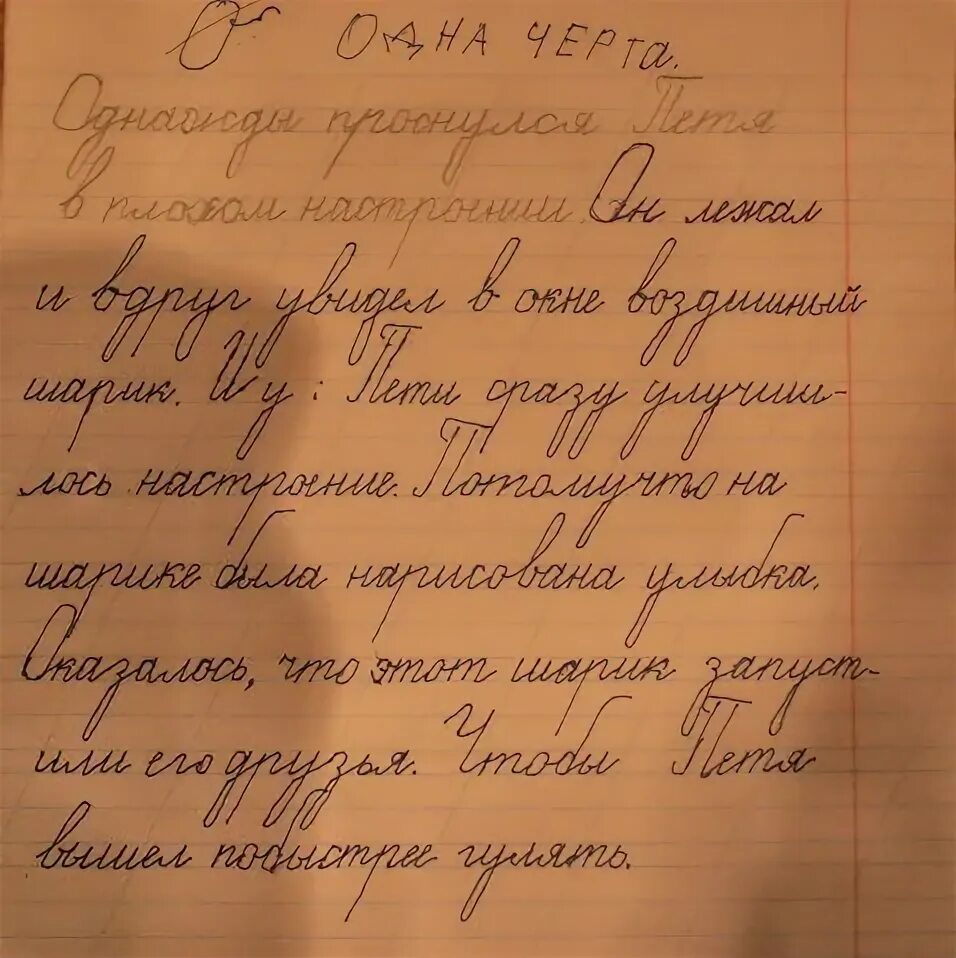 ОДНА ЧЕРТА.
Однаожды проснулся Петя
в плохом настроении. Он лежал
и вдруг увидел в окне воздишный
шарик. И у : Пети сразу улучши-
лось настроение. Потомучто на
шарике была нарисована улыбка.
Оказалось, что этот шарик запуст-
или его друзья. Чтобы Петя
вышел побыстрее гулять.